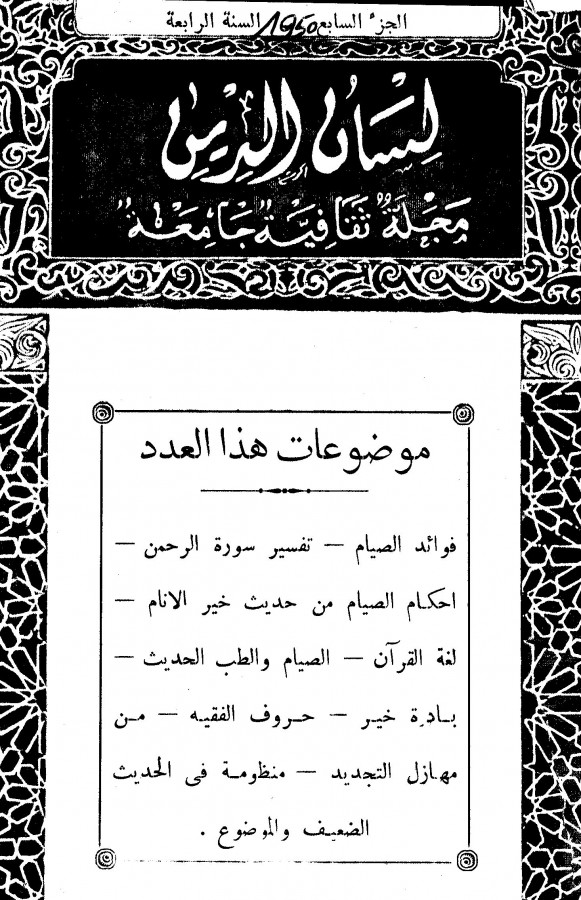 الجزء السابع 1950 السنة الرابعة
لِسَانُ الدِّين
مَجَلَّةٌ ثَقَافِيَّةٌ جَامِعَةٌ
موضوعات هذا العدد
فوائد الصيام — تفسير سورة الرحمن —
احكام الصيام من حديث خير الانام —
لغة القرآن — الصيام والطب الحديث —
بادرة خير — حروف الفقيه — من
مهازل التجديد — منظومة فى الحديث
الضعيف والموضوع .